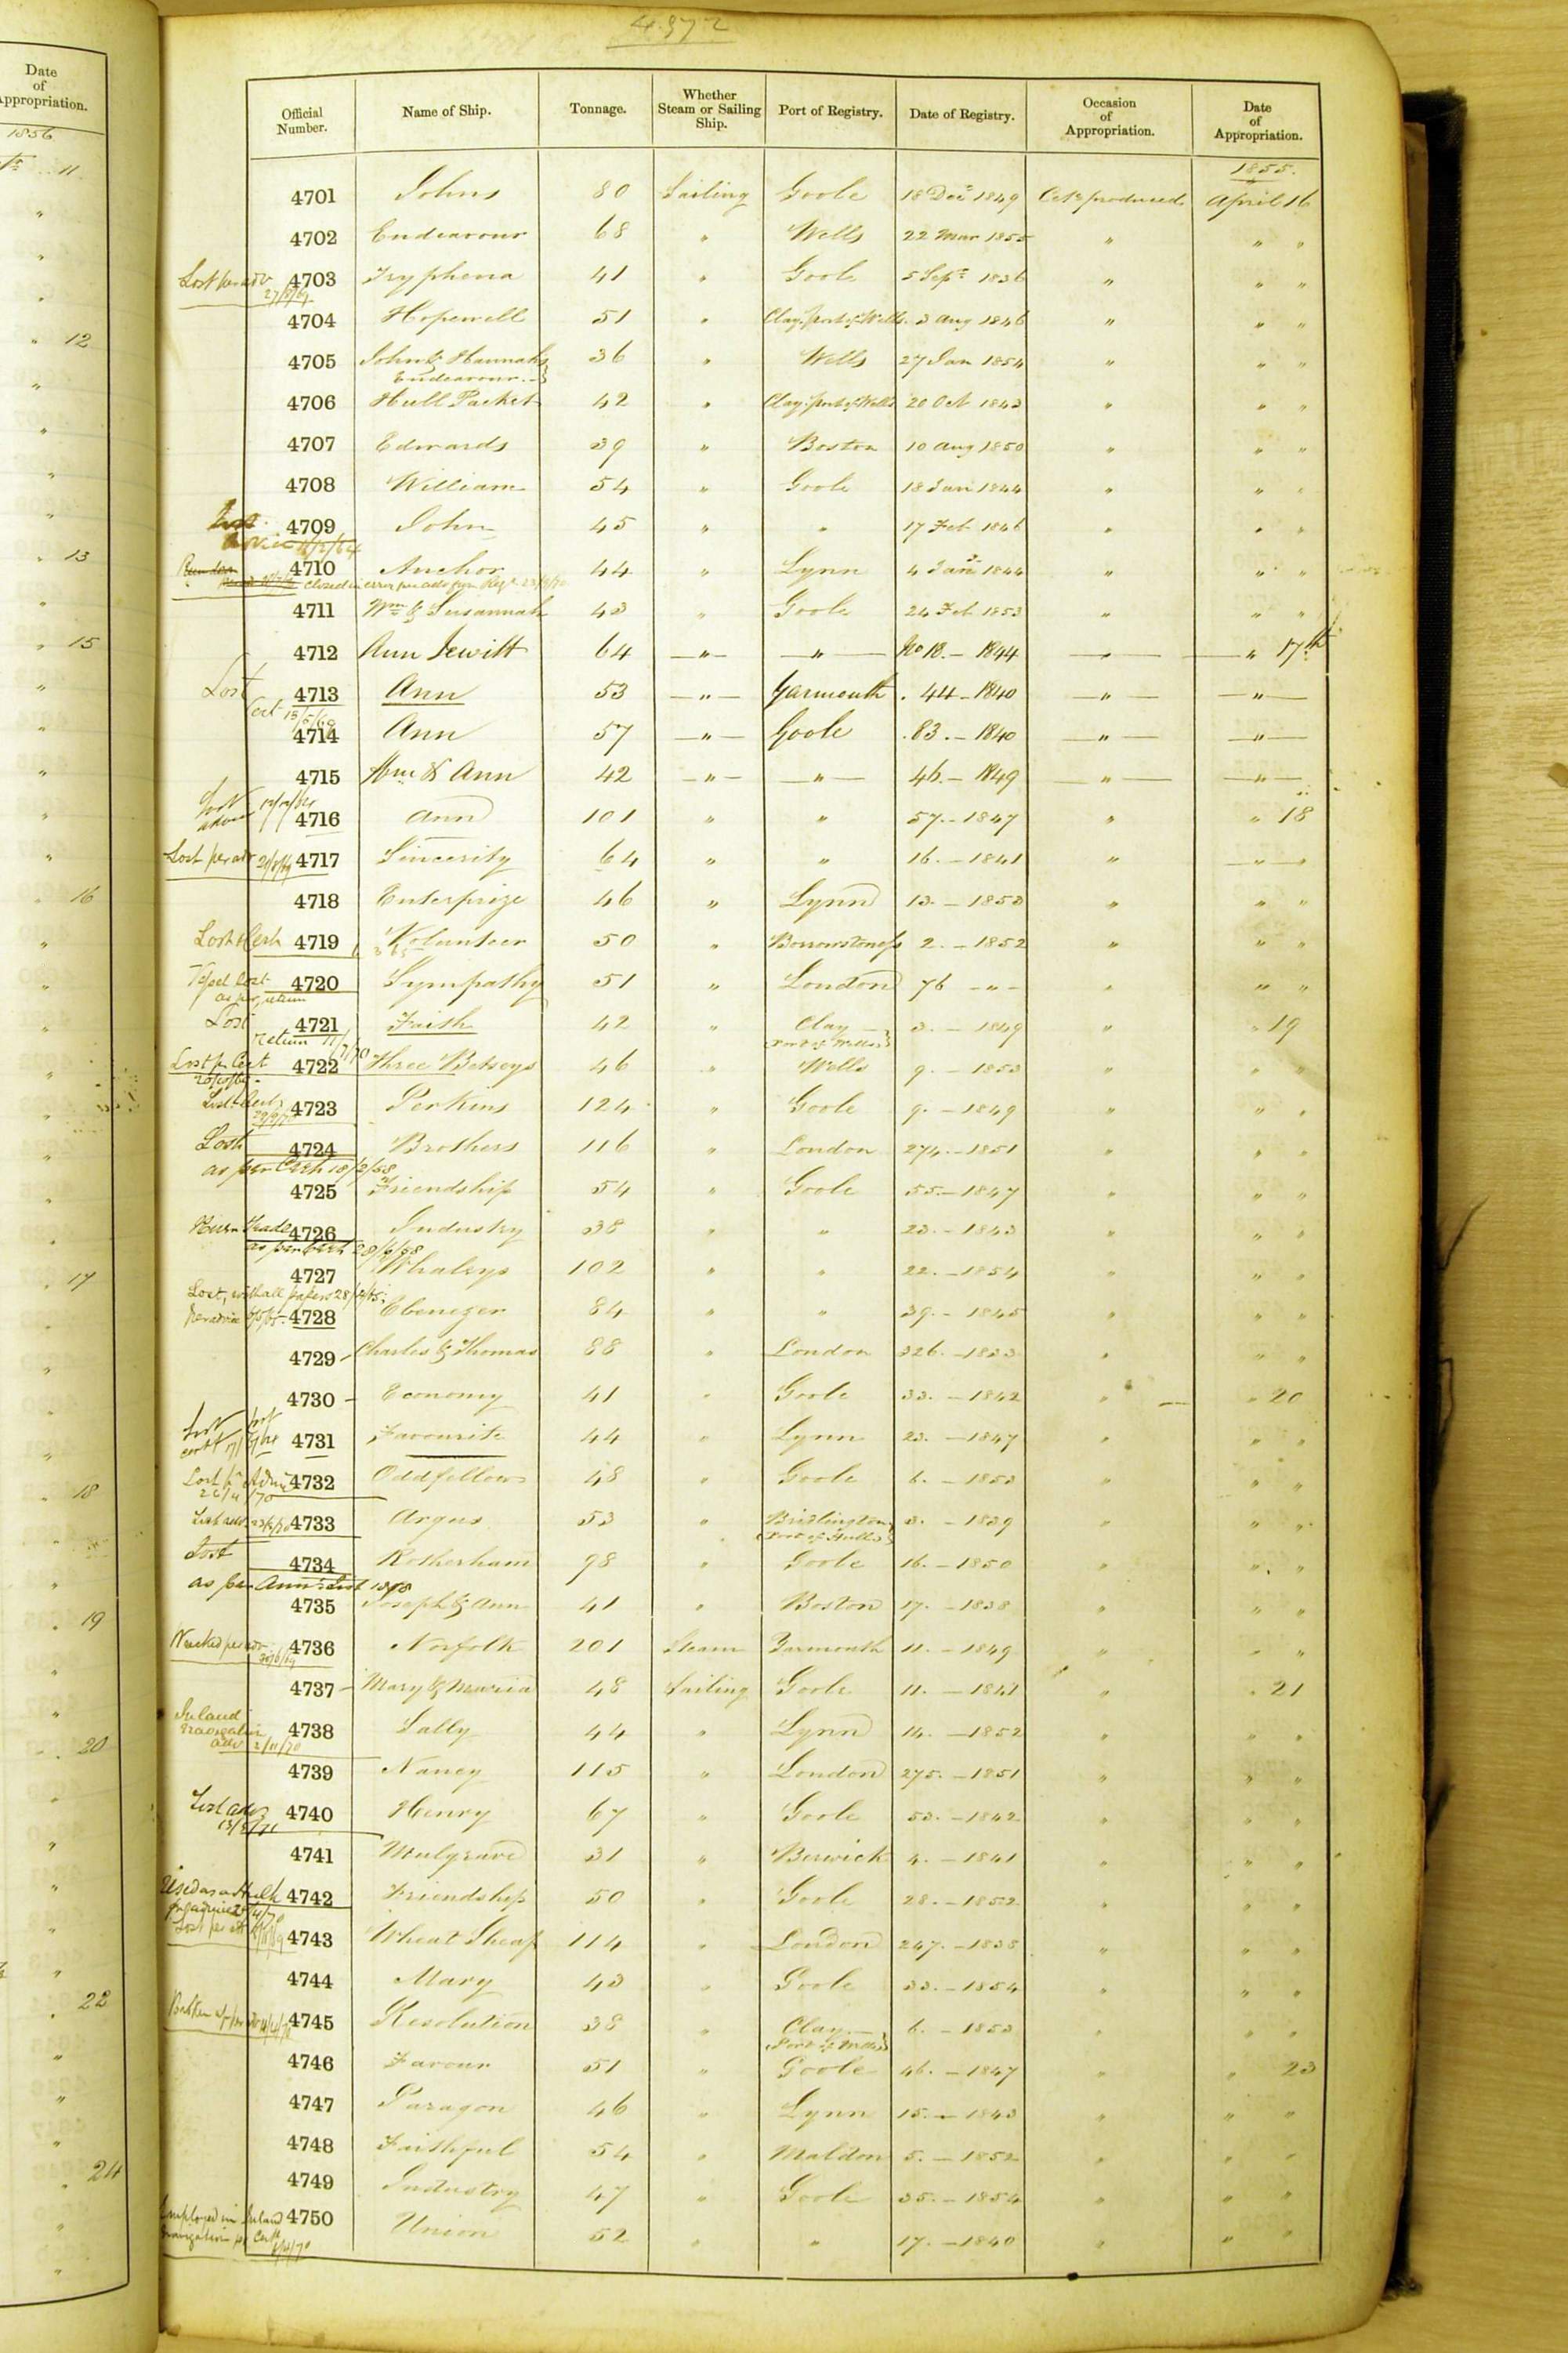 4372
Date
of
Appropriation.
1856
11
12
13
15
16
17
18
19
20
22
24
Official Number. Name of Ship. Tonnage. Whether Steam or Sailing Ship. Port of Registry. Date of Registry. Occasion of Appropriation. Date of Appropriation.
1855.
4701 Johns 80 Sailing Goole 18 Decr 1849 Certe produced April 16
4702 Endeavour 68 " Wells 22 Mar 1855 " " "
Lost per adv 4703 Tryphena 41 " Goole 5 Sepr 1836 " " "
4704 Hopewell 51 " Clay. port of Wells. 3 Aug 1846 " " "
4705 John & Hannahs 36 " Wells 27 Jan 1854 " " "
Endeavour
4706 Hull Packet 42 " Clay. port of Wells 20 Oct 1843 " " "
4707 Edwards 39 " Boston 10 Aug 1850 " " "
4708 William 54 " Goole 18 Jan 1844 " " "
Lost 4709 John 45 " " 17 Feb 1846 " " "
advice 11/2/64
4710 Anchor 44 " Lynn 4 Jany 1844 " " "
closed in error per
4711 Wm & Susannah 43 " Goole 24 Feb 1853 " " "
4712 Ann Jewitt 64 " " No 18. - 1844 " " 17th
Lost 4713 Ann 53 " Yarmouth . 44 - 1840 " "
Cert
4714 Ann 57 " Goole . 83. - 1840 " "
4715 Wm & Ann 42 " " 46. - 1849 " "
Lost advice 4716 Ann 101 " " 57. - 1847 " " 18
Lost per adv 4717 Sincerity 64 " " 16. - 1841 " " "
4718 Enterprize 46 " Lynn 13. - 1853 " " "
Lost Cert 4719 Volunteer 50 " Borrowstoness 2. - 1852 " " "
Vessel lost 4720 Sympathy 51 " London 76 - " - " " "
as per return
Lost 4721 Faith 42 " Clay 3. - 1849 " " 19
return (Port of Wells)
Lost p Cert 4722 Three Betseys 46 " Wells 9. - 1853 " " "
Lost Cert 4723 Perkins 124 " Goole 9. - 1849 " " "
Lost 4724 Brothers 116 " London 274. - 1851 " " "
as per Cert 18/2/68
4725 Friendship 54 " Goole 55. - 1847 " " "
Trade 4726 Industry 38 " " 23. - 1843 " " "
as per Cert 28/2/68
4727 Whaleys 102 " " 22. - 1854 " " "
Lost, with all papers
Per advice 4728 Ebenezer 84 " " 39. - 1845 " " "
4729 Charles & Thomas 88 " London 326. - 1833 " " "
4730 Economy 41 " Goole 33. - 1842 " " 20
Lost 4731 Favourite 44 " Lynn 23. - 1847 " " "
Lost pr Advice 4732 Oddfellows 48 " Goole 6. - 1853 " " "
4733 Argus 53 " Bridlington 3. - 1839 " " "
(Port of Hull)
Lost 4734 Rotherham 98 " Goole 16. - 1850 " " "
as per Ann: List 1868
4735 Joseph & Ann 41 " Boston 17. - 1838 " " "
Wrecked per adv 4736 Norfolk 201 Steam Yarmouth 11. - 1849 " " "
4737 Mary & Maria 48 Sailing Goole 11. - 1841 " " 21
Inland Navigation 4738 Sally 44 " Lynn 14. - 1852 " " "
adv 2/11/70
4739 Nancy 115 " London 275. - 1851 " " "
Lost adv 4740 Henry 67 " Goole 53. - 1842 " " "
4741 Mulgrave 31 " Berwick 4. - 1841 " " "
Used as a Hulk 4742 Friendship 50 " Goole 28. - 1852 " " "
per advice
Lost per 4743 Wheat Sheaf 114 " London 247. - 1838 " " "
4744 Mary 43 " Goole 33. - 1854 " " "
Broken up per 4745 Resolution 38 " Clay 6. - 1853 " " "
(Port of Wells)
4746 Favour 51 " Goole 46. - 1847 " " 23
4747 Paragon 46 " Lynn 15. - 1843 " " "
4748 Faithful 54 " Maldon 5. - 1852 " " "
4749 Industry 47 " Goole 35. - 1854 " " "
Employed in Inland 4750 Union 52 " " 17. - 1840 " " "
navigation pr Cert